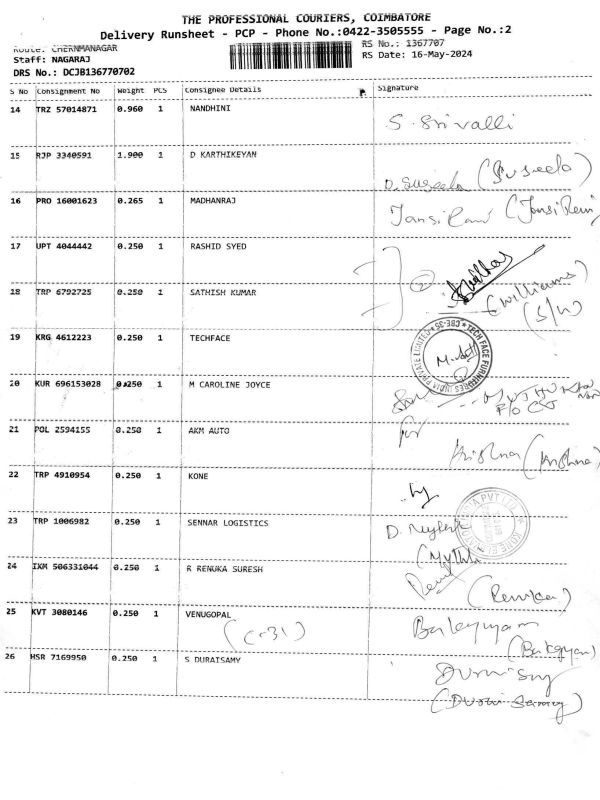 THE PROFESSIONAL COURIERS, COIMBATORE
Delivery Runsheet - PCP - Phone No.:0422-3505555 - Page No.:2
Route: CHERNMANAGAR
RS No.: 1367707
Staff: NAGARAJ
RS Date: 16-May-2024
DRS No.: DCJB136770702
S No Consignment No Weight PCS Consignee Details Signature
14 TRZ 57014871 0.960 1 NANDHINI
S. Srivalli
15 RJP 3340591 1.900 1 D KARTHIKEYAN
D. Suseela (Suseela)
16 PRO 16001623 0.265 1 MADHANRAJ
Jansi Rani (Jansi Rani)
17 UPT 4044442 0.250 1 RASHID SYED
2
18 TRP 6792725 0.250 1 SATHISH KUMAR
(Williams)
(S/W)
19 KRG 4612223 0.250 1 TECHFACE
TECH FACE FURNZRES INDIA PRIVATE LIMITED CBE-35
20 KUR 696153028 0.250 1 M CAROLINE JOYCE
21 POL 2594155 0.250 1 AKM AUTO
for
Krishna (Krishna)
22 TRP 4910954 0.250 1 KONE
23 TRP 1006982 0.250 1 SENNAR LOGISTICS
24 IKM 506331044 0.250 1 R RENUKA SURESH
(Renuka)
25 KVT 3080146 0.250 1 VENUGOPAL
(C-31)
26 HSR 7169950 0.250 1 S DURAISAMY